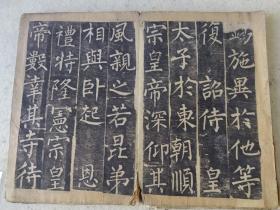 錫施異於他等
復 詔侍 皇
太子於東朝順
宗皇帝深仰其
風親之若昆弟
相與卧起 恩
禮特隆憲宗皇
帝數幸其寺待